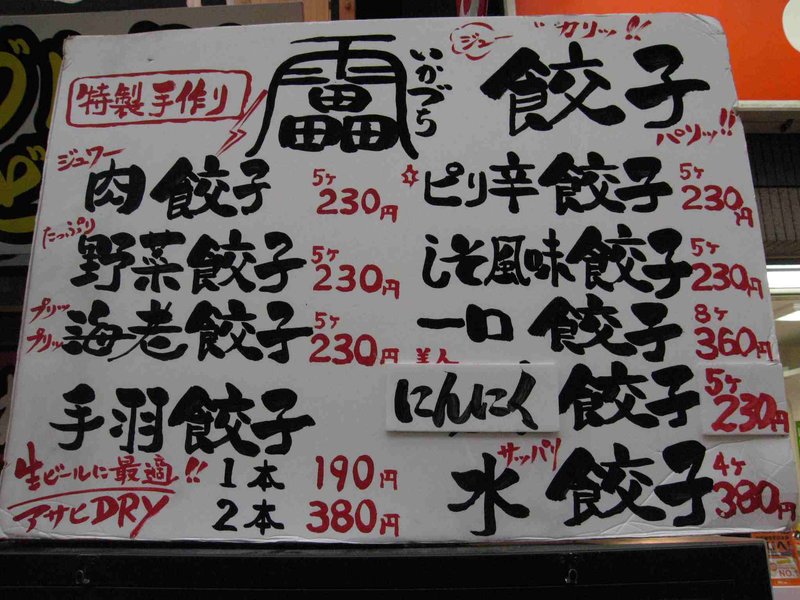 ジュー ガリッ!!
特製手作り
いかづち
餃子
パリッ!!
ジュワー
肉餃子 5ケ 230円
☆ピリ辛餃子 5ケ 230円
たっぷり
野菜餃子 5ケ 230円
しそ風味餃子 5ケ 230円
プリップリッ
海老餃子 5ケ 230円
一口餃子 8ケ 360円
美人
にんにく餃子 5ケ 230円
手羽餃子
生ビールに最適!!
アサヒDRY
1本 190円
2本 380円
サッパリ
水餃子 4ケ 380円